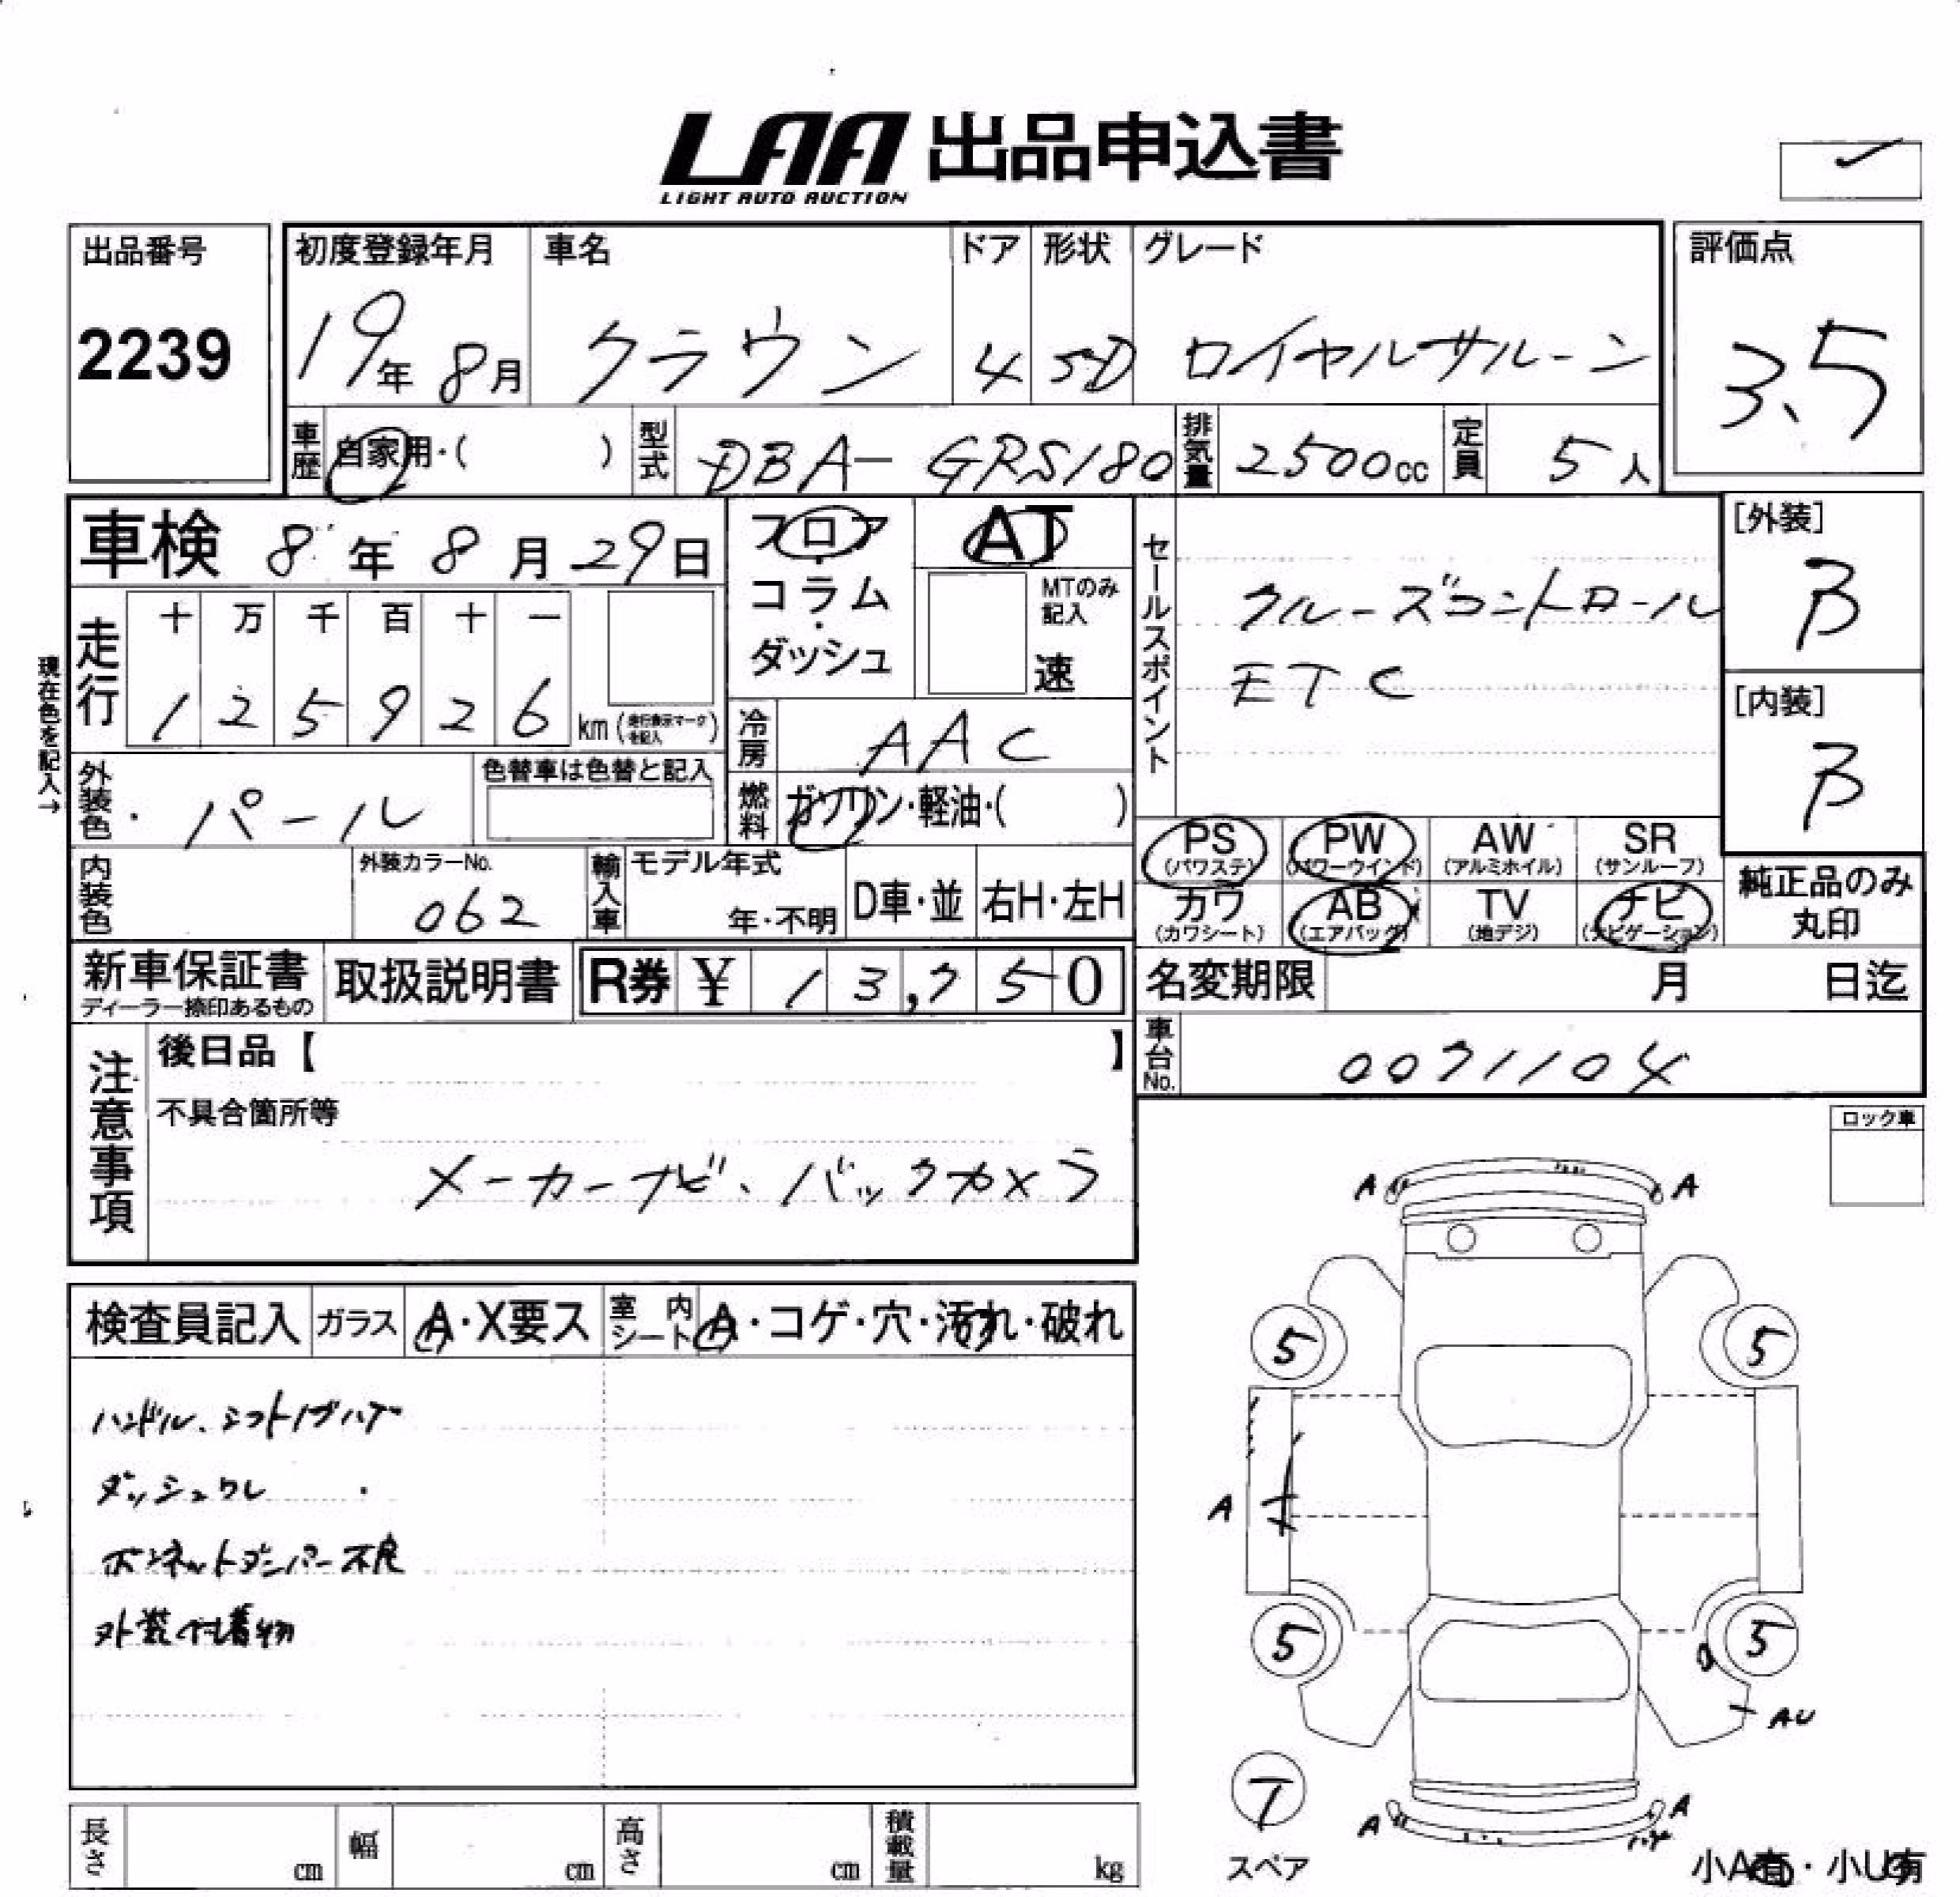 LAA 出品申込書
LIGHT AUTO AUCTION
出品番号
2239
初度登録年月 車名 ドア 形状 グレード
19年 8月 クラウン 4 SD ロイヤルサルーン
評価点
3.5
車歴 自家用・( ) 型式 DBA-GRS180 排気量 2500cc 定員 5人
車検 8年 8月 29日
フロア・コラム・ダッシュ
AT
MTのみ記入
速
セールスポイント
クルーズコントロール
ETC
[外装]
B
[内装]
B
現在色を記入→
走行
十 万 千 百 十 一
1 2 5 9 2 6 km (走行表示マークを記入)
冷房 AAC
外装色 パール 色替車は色替と記入
燃料 ガソリン・軽油・( )
内装色 外装カラーNo. 062
輸入車 モデル年式 年・不明 D車・並 右H・左H
PS (パワステ) PW (パワーウインド) AW (アルミホイル) SR (サンルーフ)
カワ (カワシート) AB (エアバッグ) TV (地デジ) ナビ (ナビゲーション)
純正品のみ丸印
新車保証書 ディーラー捺印あるもの 取扱説明書 R券 ¥ 13,750
名変期限 月 日迄
車台No. 0071104
注意事項
後日品【 】
不具合箇所等
メーカーナビ、バックカメラ
ロック車
検査員記入 ガラス A・X要ス 室内シート A・コゲ・穴・汚れ・破れ
ハンドル、シフトノブハゲ
ダッシュワレ
ボンネットダンパー不良
外装付着物
A A
5 5
A
5 5
AU
7
スペア
A A
小A有・小U有
長さ cm 幅 cm 高さ cm 積載量 kg